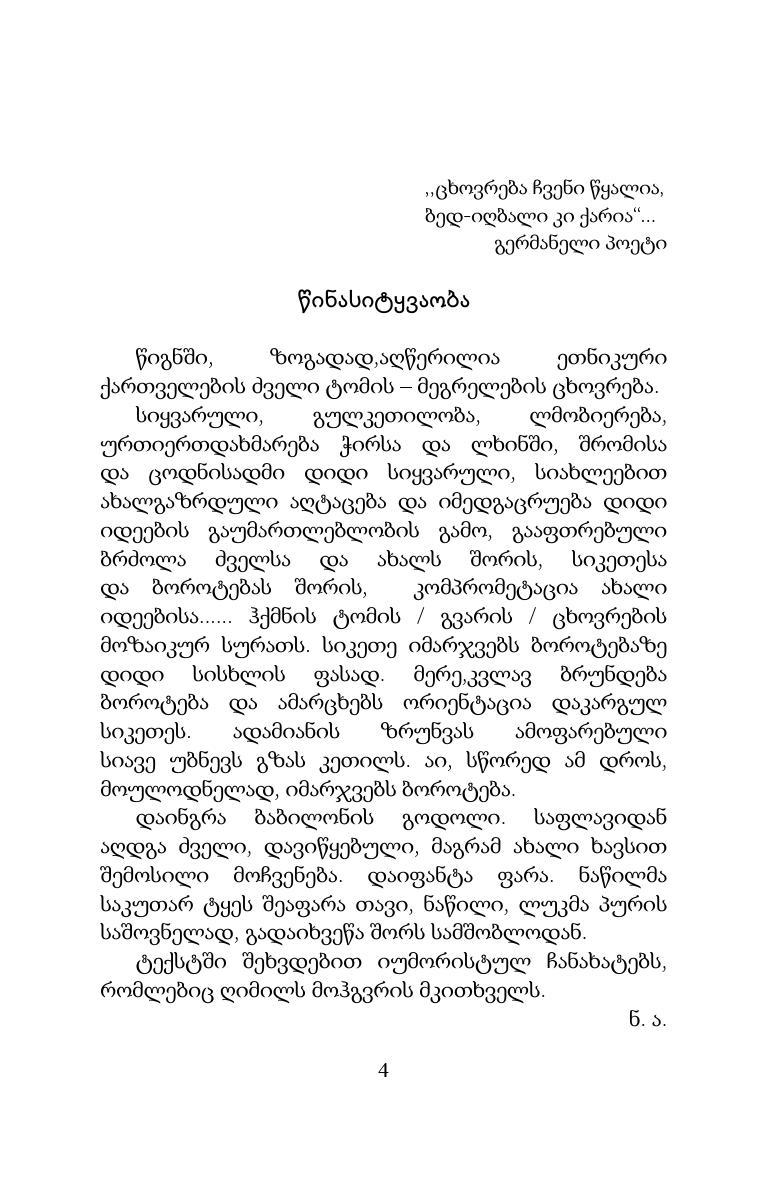 ,,ცხოვრება ჩვენი წყალია,
ბედ-იღბალი კი ქარია“...
გერმანელი პოეტი
წინასიტყვაობა
წიგნში, ზოგადად,აღწერილია ეთნიკური
ქართველების ძველი ტომის – მეგრელების ცხოვრება.
სიყვარული, გულკეთილობა, ლმობიერება,
ურთიერთდახმარება ჭირსა და ლხინში, შრომისა
და ცოდნისადმი დიდი სიყვარული, სიახლეებით
ახალგაზრდული აღტაცება და იმედგაცრუება დიდი
იდეების გაუმართლებლობის გამო, გააფთრებული
ბრძოლა ძველსა და ახალს შორის, სიკეთესა
და ბოროტებას შორის, კომპრომეტაცია ახალი
იდეებისა...... ჰქმნის ტომის / გვარის / ცხოვრების
მოზაიკურ სურათს. სიკეთე იმარჯვებს ბოროტებაზე
დიდი სისხლის ფასად. მერე,კვლავ ბრუნდება
ბოროტება და ამარცხებს ორიენტაცია დაკარგულ
სიკეთეს. ადამიანის ზრუნვას ამოფარებული
სიავე უბნევს გზას კეთილს. აი, სწორედ ამ დროს,
მოულოდნელად, იმარჯვებს ბოროტება.
დაინგრა ბაბილონის გოდოლი. საფლავიდან
აღდგა ძველი, დავიწყებული, მაგრამ ახალი ხავსით
შემოსილი მოჩვენება. დაიფანტა ფარა. ნაწილმა
საკუთარ ტყეს შეაფარა თავი, ნაწილი, ლუკმა პურის
საშოვნელად, გადაიხვეწა შორს სამშობლოდან.
ტექსტში შეხვდებით იუმორისტულ ჩანახატებს,
რომლებიც ღიმილს მოჰგვრის მკითხველს.
ნ. ა.
4